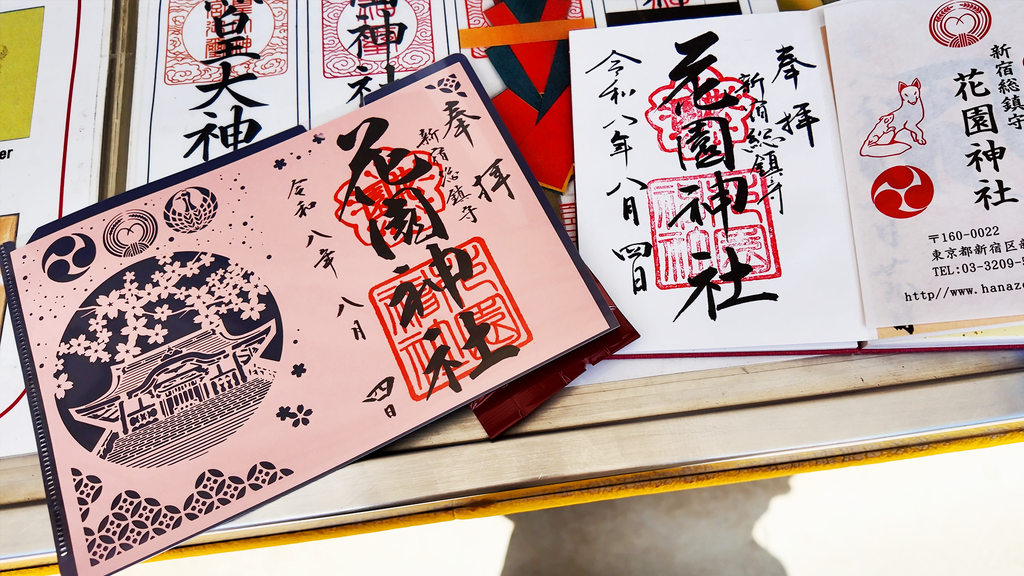 皇大神
神社
er
奉拝
新宿総鎮守
花園神社
令和八年八月四日
奉拝
新宿総鎮守
花園神社
令和八年八月四日
新宿総鎮守
花園神社
〒160-0022
東京都新宿区
TEL:03-3209-5
http//www.hanazo